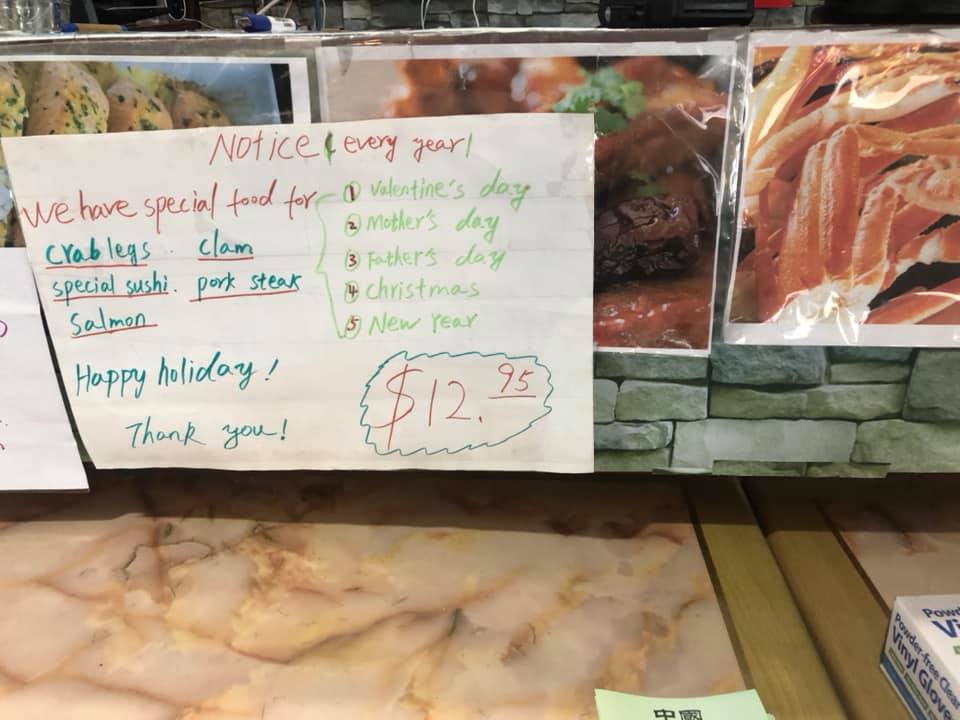 Notice (every year)
We have special food for
crab legs. clam
special sushi. pork steak
Salmon
① Valentine's day
② Mother's day
③ Father's day
④ Christmas
⑤ New Year
Happy holiday!
Thank you!
$12.95
Powder-free Clear
Vinyl Glove
中國